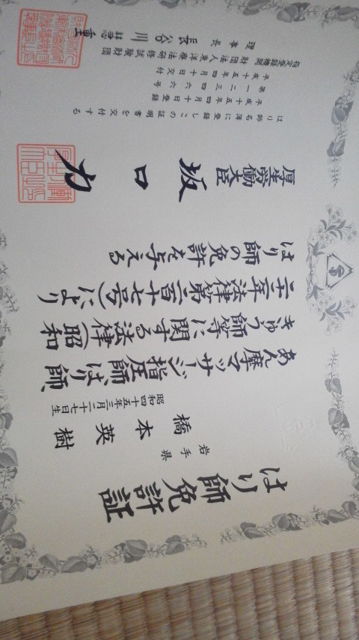 はり師免許証
岩手県
橋本英樹
昭和四十五年三月二十七日生
あん摩マッサージ指圧師、はり師、
きゅう師等に関する法律(昭和
二十二年法律第二百十七号)により
はり師の免許を与える
厚生労働大臣
坂口力
はり師名簿に登録しこの証明書を交付する
平成十五年四月十日登録
第一二三四六六号
平成十五年四月十日交付
指定登録機関 財団法人東洋療法研修試験財団
理事長 長谷川